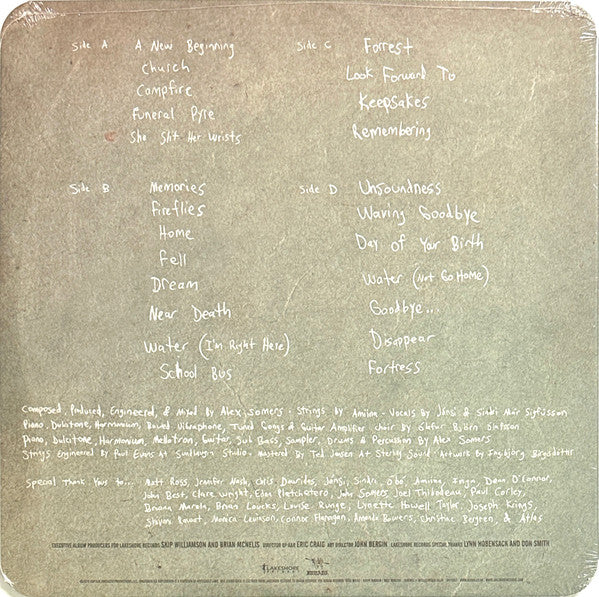 Side A
A New Beginning
Church
Campfire
Funeral Pyre
She Slit Her Wrists
Side B
Memories
Fireflies
Home
Fell
Dream
Near Death
Water (I'm Right Here)
School Bus
Side C
Forrest
Look Forward To
Keepsakes
Remembering
Side D
Unsoundness
Waving Goodbye
Day of Your Birth
Water (Not Go Home)
Goodbye...
Disappear
Fortress
Composed, Produced, Engineered, & Mixed By Alex Somers - Strings by Amiina - Vocals By Jónsi & Sindri Már Sigfússon
Piano, Dulcitone, Harmonium, Bowed Vibraphone, Tuned Gongs & Guitar Amplifier Choir By Ólafur Björn Ólafsson
Piano, Dulcitone, Harmonium, Mellotron, Guitar, Sub Bass, Sampler, Drums & Percussion By Alex Somers
Strings Engineered By Paul Evans At Sundlaugin Studio. Mastered By Ted Jensen At Sterling Sound Artwork By Ingibjörg Birgisdóttir
Special Thank You to... Matt Ross, Jennifer Nash, Chris Douridas, Jónsi, Sindri, Óbó, Amiina, Inga, Dean O'Connor,
John Best, Clare Wright, John Somers, Joel Thibodeau, Paul Corley,
Brian Loucks, Louise Runge, Lynette Howell Taylor, Joseph Krings,
Monica Levinson, Connor Flanagan, Amanda Bowers, Christine Bergren, & Atlas
EXECUTIVE ALBUM PRODUCERS FOR LAKESHORE RECORDS SKIP WILLIAMSON AND BRIAN MCNELIS DIRECTOR OF A&R ERIC CRAIG ART DIRECTOR JOHN BERGIN LAKESHORE RECORDS SPECIAL THANKS LYNN HOBENSACK AND DON SMITH
LAKESHORE